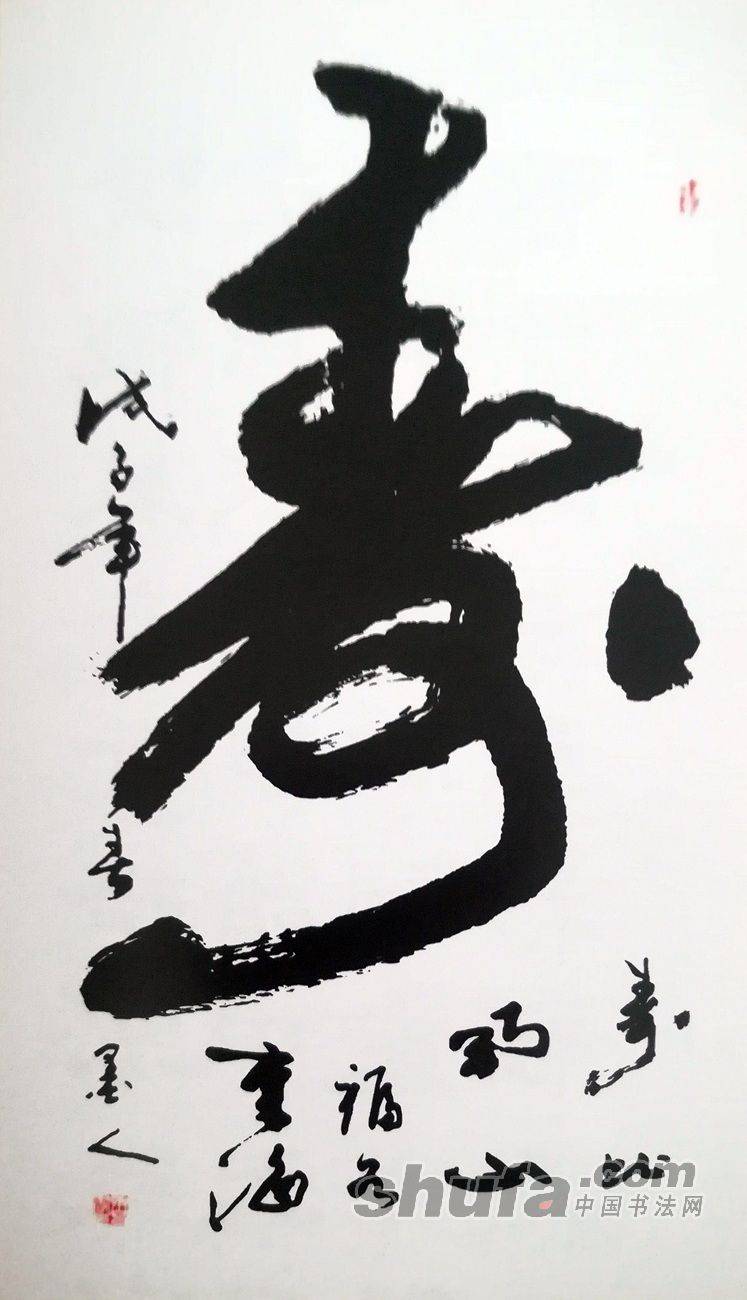 寿
寿比
南山
福如
東海
戊子年春
墨人
shufa.com
中国书法网